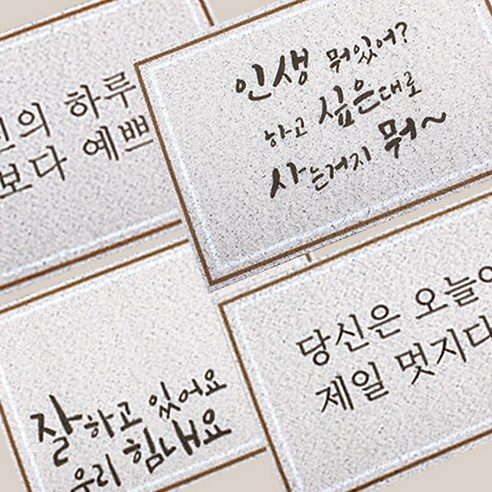 인생 뭐있어?
하고 싶은대로
사는거지 뭐~
의 하루
보다 예쁘
당신은 오늘이
제일 멋지다
잘하고 있어요
우리 힘내요